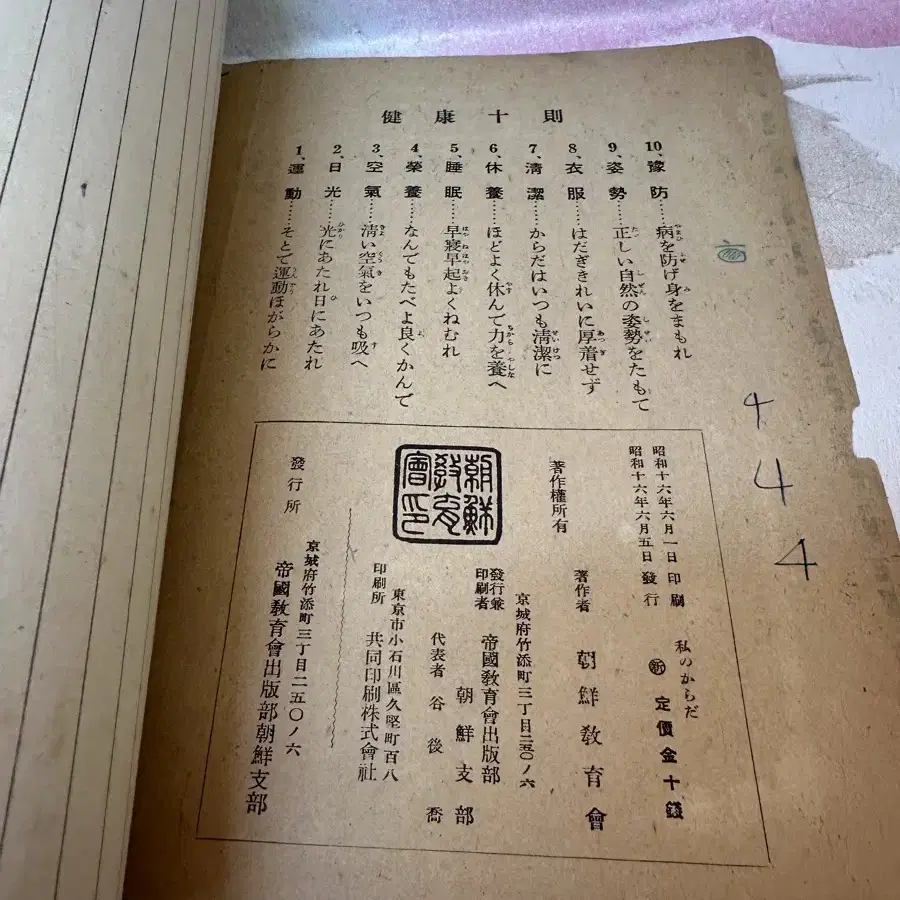 健康十則
1、運動……そとで運動ほがらかに
2、日光……光にあたれ日にあたれ
3、空氣……淸い空氣をいつも吸へ
4、榮養……なんでもたべよ良くかんで
5、睡眠……早寢早起よくねむれ
6、休養……ほどよく休んで力を養へ
7、淸潔……からだはいつも淸潔に
8、衣服……はだぎきれいに厚着せず
9、姿勢……正しい自然の姿勢をたもて
10、豫防……病を防げ身をまもれ
4
4
4
私のからだ
㊟新 定價金十錢
昭和十六年六月一日印刷
昭和十六年六月五日發行
著作者 朝鮮敎育會
著作權所有
京城府竹添町三丁目二五〇ノ六
發行兼印刷者 帝國敎育會出版部
朝鮮支部
代表者 谷後喬
朝鮮敎育會印
東京市小石川區久堅町百八
印刷所 共同印刷株式會社
發行所
京城府竹添町三丁目二五〇ノ六
帝國敎育會出版部朝鮮支部